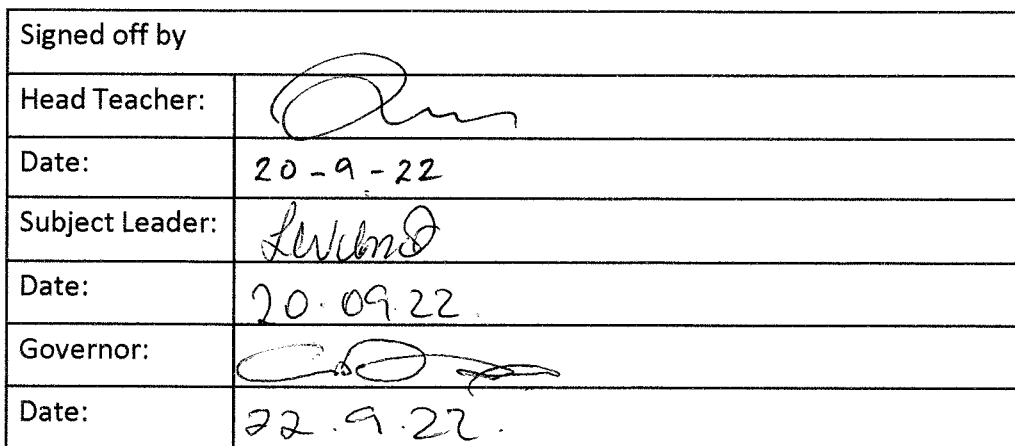 Signed off by
Head Teacher:
Date: 20-9-22
Subject Leader:
Date: 20.09.22.
Governor:
Date: 22.9.22.